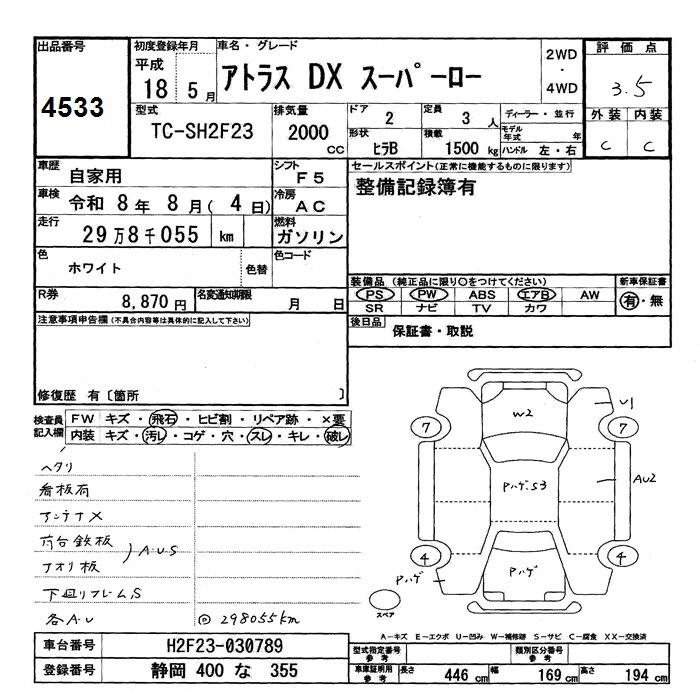 出品番号
4533
初度登録年月
平成
18 5月
車名・グレード
アトラス DX スーパーロー
2WD
・
4WD
評価点
3.5
外装 内装
C C
型式
TC-SH2F23
排気量
2000 CC
ドア 2
定員 3人
形状 ヒラB
積載 1500 kg
ディーラー・並行
モデル年式 年
ハンドル 左・右
車歴 自家用
シフト F5
セールスポイント(正常に機能するものに限ります)
整備記録簿有
車検 令和 8年 8月( 4日)
冷房 AC
走行 29万8千055 km
燃料 ガソリン
色 ホワイト 色替
色コード
R券 8,870円
名変通知期限 月 日
装備品(純正品に限り○をつけてください)
PS PW ABS エアB AW
SR ナビ TV カワ
新車保証書
有・無
後日品 保証書・取説
注意事項申告欄(不具合内容等は具体的に記入して下さい)
修復歴 有〔箇所 〕
検査員記入欄
FW キズ・飛石・ヒビ割・リペア跡・×要
内装 キズ・汚レ・コゲ・穴・スレ・キレ・破レ
ヘタリ
看板有
アンテナX
荷台鉄板
アオリ板
)A.U.S
下廻リフレームS
各A.U
◎298055km
W2
U1
7
7
Pハゲ.S3
AU2
4
4
Pハゲ
Pハゲ
スペア
A-キズ E-エクボ U-凹み W-補修跡 S-サビ C-腐食 XX-交換済
車台番号 H2F23-030789
登録番号 静岡 400 な 355
型式指定番号 参考
類別区分番号 参考
車庫証明用 参考
長さ 446 cm 幅 169 cm 高さ 194 cm